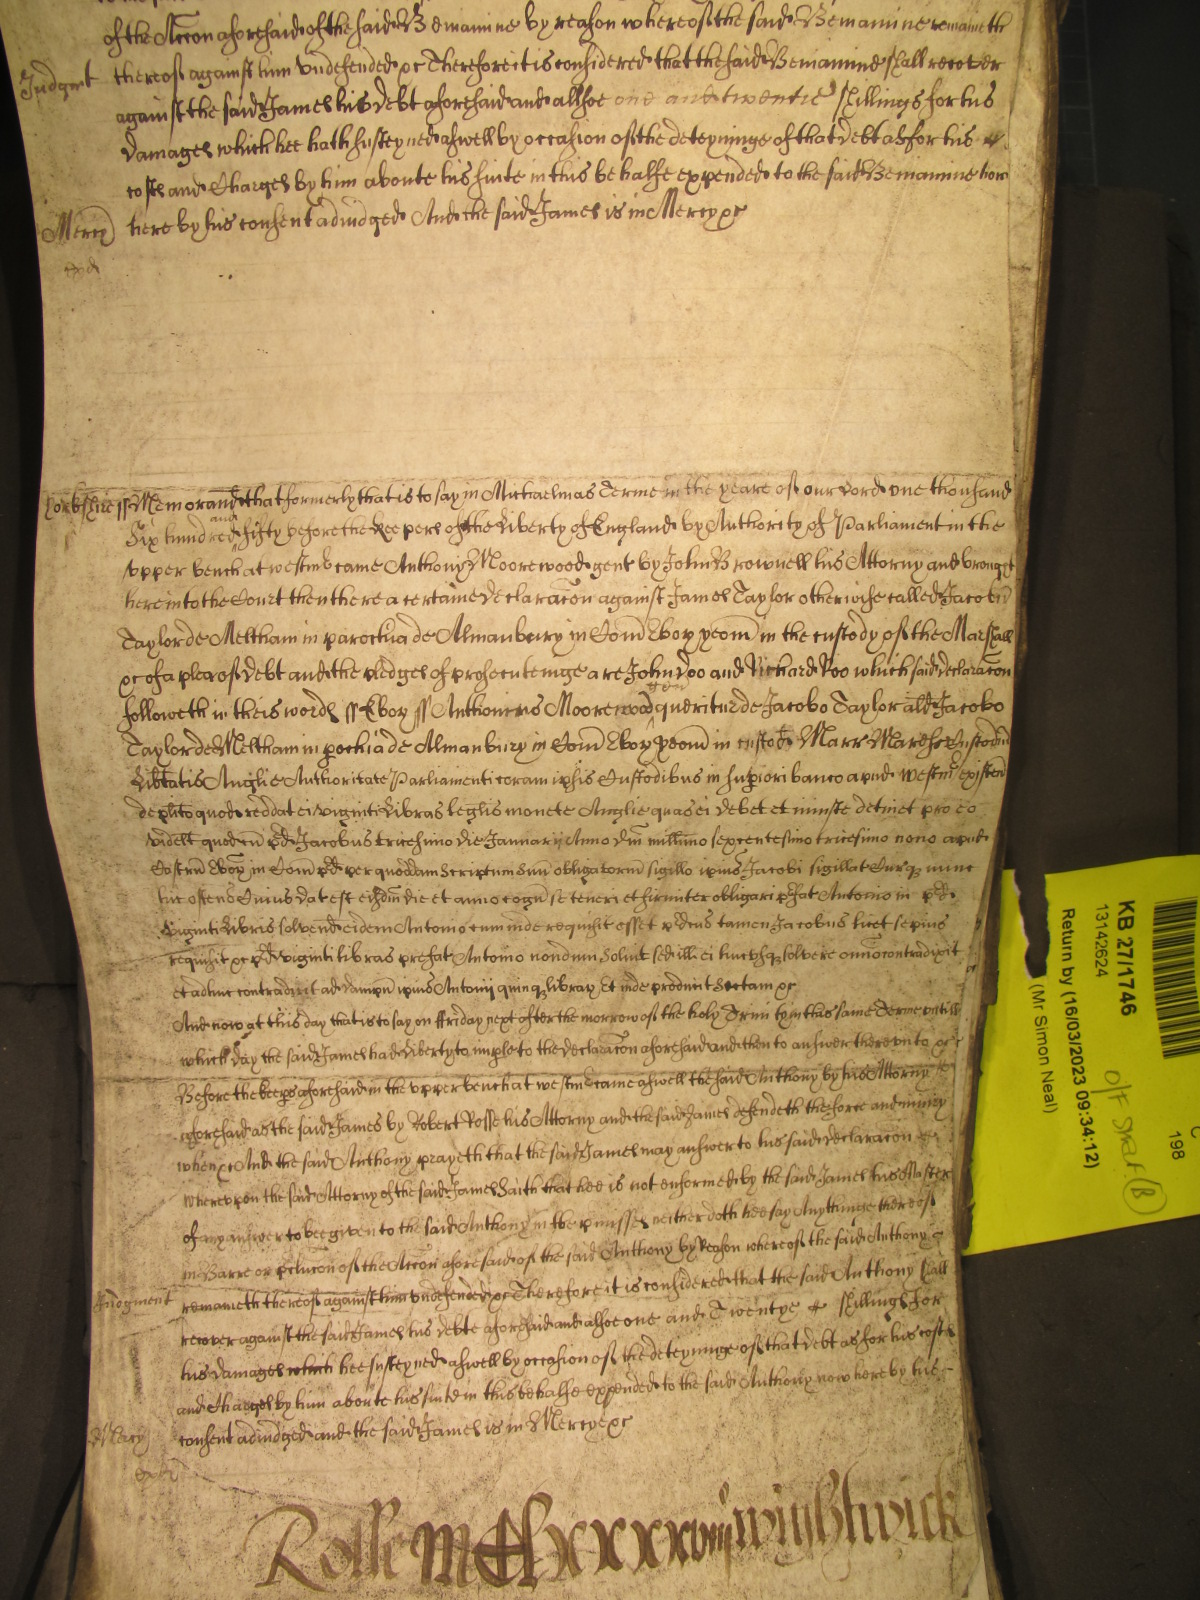 of the Accon aforesaid of the said Beniamine by reason whereof the said Beniamine remaineth
Judgmt thereof against him Vndefended &c Therefore it is considered that the said Beniamine shall recover
against the said James his debt aforesaid and allsoe one and twentie shillings for his
damages which hee hath susteyned aswell by occasion of the deteyninge of that debt as for his
costs and Charges by him aboute his suite in this behalfe expended to the said Beniamine now
Mercy here by his consent adiudged And the said James is in Mercy &c
Yorkshire ss Memorand that formerly that is to say in Michaelmas Terme in the yeare of our Lord one thousand
Six hundred and fifty before the Keepers of the Liberty of England by Authority of Parliament in the
vpper bench at westmr came Anthony Moorewood gent by John Brownell his Attorny and brought
here into the Court then there a certaine declaracon against James Taylor otherwise called Jacobu
Taylor de Meltham in parochia de Almanbury in Com Ebor yeom in the custody of the Marshall
&c of a plea of debt and the pledges of prosecuteinge are John Doo and Richard Roo which said declaracon
followeth in theis words ss Ebor ss Anthonius Moorewood gen queritur de Jacobo Taylor als Jacobo
Taylor de Meltham in pochia de Almanbury in Com Ebor yeom in custod Marr Maresc Custodm
Libtatis Anglie Authoritate Parliamenti coram ipsis Custodibus in supiori banco apud Westm existen
de plito quod reddat ei viginti libras leglis monete Anglie quas ei debet et iniuste detinet pro eo
videlt quod cu pd Jacobus tricesimo die Januarij Anno dm millimo sexcentesimo tricesimo nono apud
Castrum Ebor in Com pd per quoddam Scriptum suu obligatorm sigillo ipius Jacobi sigillat Curq nunc
hic ostens Cuius dat est eisdm die et anno cogn se teneri et firmiter obligari pfat Antonio in pd
viginti libris solvend eidem Antonio cum inde requisit esset pdcus tamen Jacobus licet sepius
requisit &c pd viginti libras prefat Antonio nondum solvit sed ill ei hucusq solvere omnio contradixit
et adhuc contradicit ad dampn ipius Antonij quinq librar Et inde producit sectam &c
And now at this day that is to say on ffriday next after the morrow of the holy Trinity in this same Terme vntill
which day the said James had Liberty to imple to the declaracon aforesaid and then to answer therevnto &c
Before the keeps aforesaid in the vpper bench at westmr came aswell the said Anthony by his Attorny
aforesaid as the said James by Robert Rosse his Attorny and the said James defendeth the force and iniury
when &c And the said Anthony prayeth that the said James may answer to his said declaracon
wherevpon the said Attorny of the said James Saith that hee is not enformed by the said James his Master
of any answer to bee given to the said Anthony in the pmisses neither doth hee say Anythinge thereof
in Barre or pclucon of the Accon aforesaid of the said Anthony by Reason whereof the said Anthony
Judgment remaineth thereof against him vndefended &c Therefore it is considered that the said Anthony shall
recover against the said James his debte aforesaid and alsoe one and Twentye shillings for
his damages which hee susteyned aswell by occasion of the deteyninge of that debt as for his costs
and Charges by him aboute his suite in this behalfe expended to the said Anthony now here by his
Mercy consent adiudged and the said James is in Mercye &c
Rolle
KB 27/1746
13142624
Return by (16/03/2023 09:34:12)
(Mr Simon Neal)
198
B